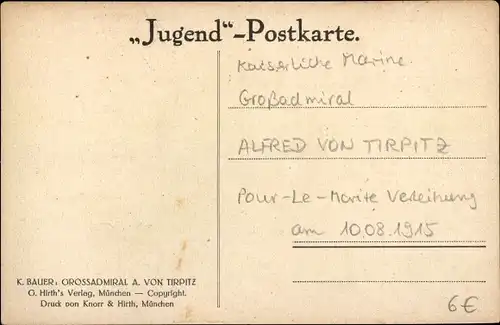 „Jugend“-Postkarte.
Kaiserliche Marine.
Großadmiral
ALFRED VON TIRPITZ
Pour-Le-Merite Verleihung
am 10.08.1915
K. BAUER: GROSSADMIRAL A. VON TIRPITZ
G. Hirth's Verlag, München — Copyright.
Druck von Knorr & Hirth, München
6€